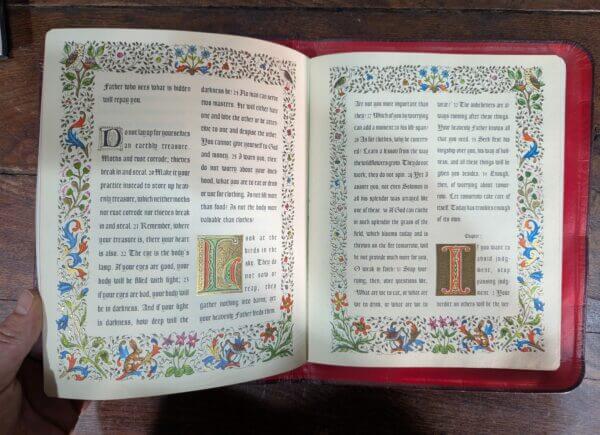 Father who sees what is hidden
will repay you.
Do not lay up for yourselves
an earthly treasure.
Moths and rust corrode; thieves
break in and steal. 20 Make it your
practice instead to store up heav-
enly treasure, which neither moths
nor rust corrode nor thieves break
in and steal. 21 Remember, where
your treasure is, there your heart
is also. 22 The eye is the body's
lamp. If your eyes are good, your
body will be filled with light; 23
if your eyes are bad, your body will
be in darkness. And if your light
is darkness, how deep will the
darkness be! 24 No man can serve
two masters. He will either hate
one and love the other or be atten-
tive to one and despise the other.
You cannot give yourself to God
and money. 25 I warn you, then:
do not worry about your liveli-
hood, what you are to eat or drink
or use for clothing. Is not life more
than food? Is not the body more
valuable than clothes?
Look at the
birds in the
sky. They do
not sow or
reap, they
gather nothing into barns; yet
your heavenly Father feeds them.
Are not you more important than
they? 27 Which of you by worrying
can add a moment to his life-span?
28 As for clothes, why be concern-
ed? Learn a lesson from the way
the wildflowers grow. They do not
work; they do not spin. 29 Yet I
assure you, not even Solomon in
all his splendor was arrayed like
one of these. 30 If God can clothe
in such splendor the grass of the
field, which blooms today and is
thrown on the fire tomorrow, will
he not provide much more for you,
O weak in faith! 31 Stop wor-
rying, then, over questions like,
What are we to eat, or what are
we to drink, or what are we to
wear? 32 The unbelievers are al-
ways running after these things.
Your heavenly Father knows all
that you need. 33 Seek first his
kingship over you, his way of holi-
ness, and all these things will be
given you besides. 34 Enough,
then, of worrying about tomor-
row. Let tomorrow take care of
itself. Today has troubles enough
of its own.
Chapter 7
If you want to
avoid judg-
ment, stop
passing judg-
ment. 2 Your
verdict on others will be the ver